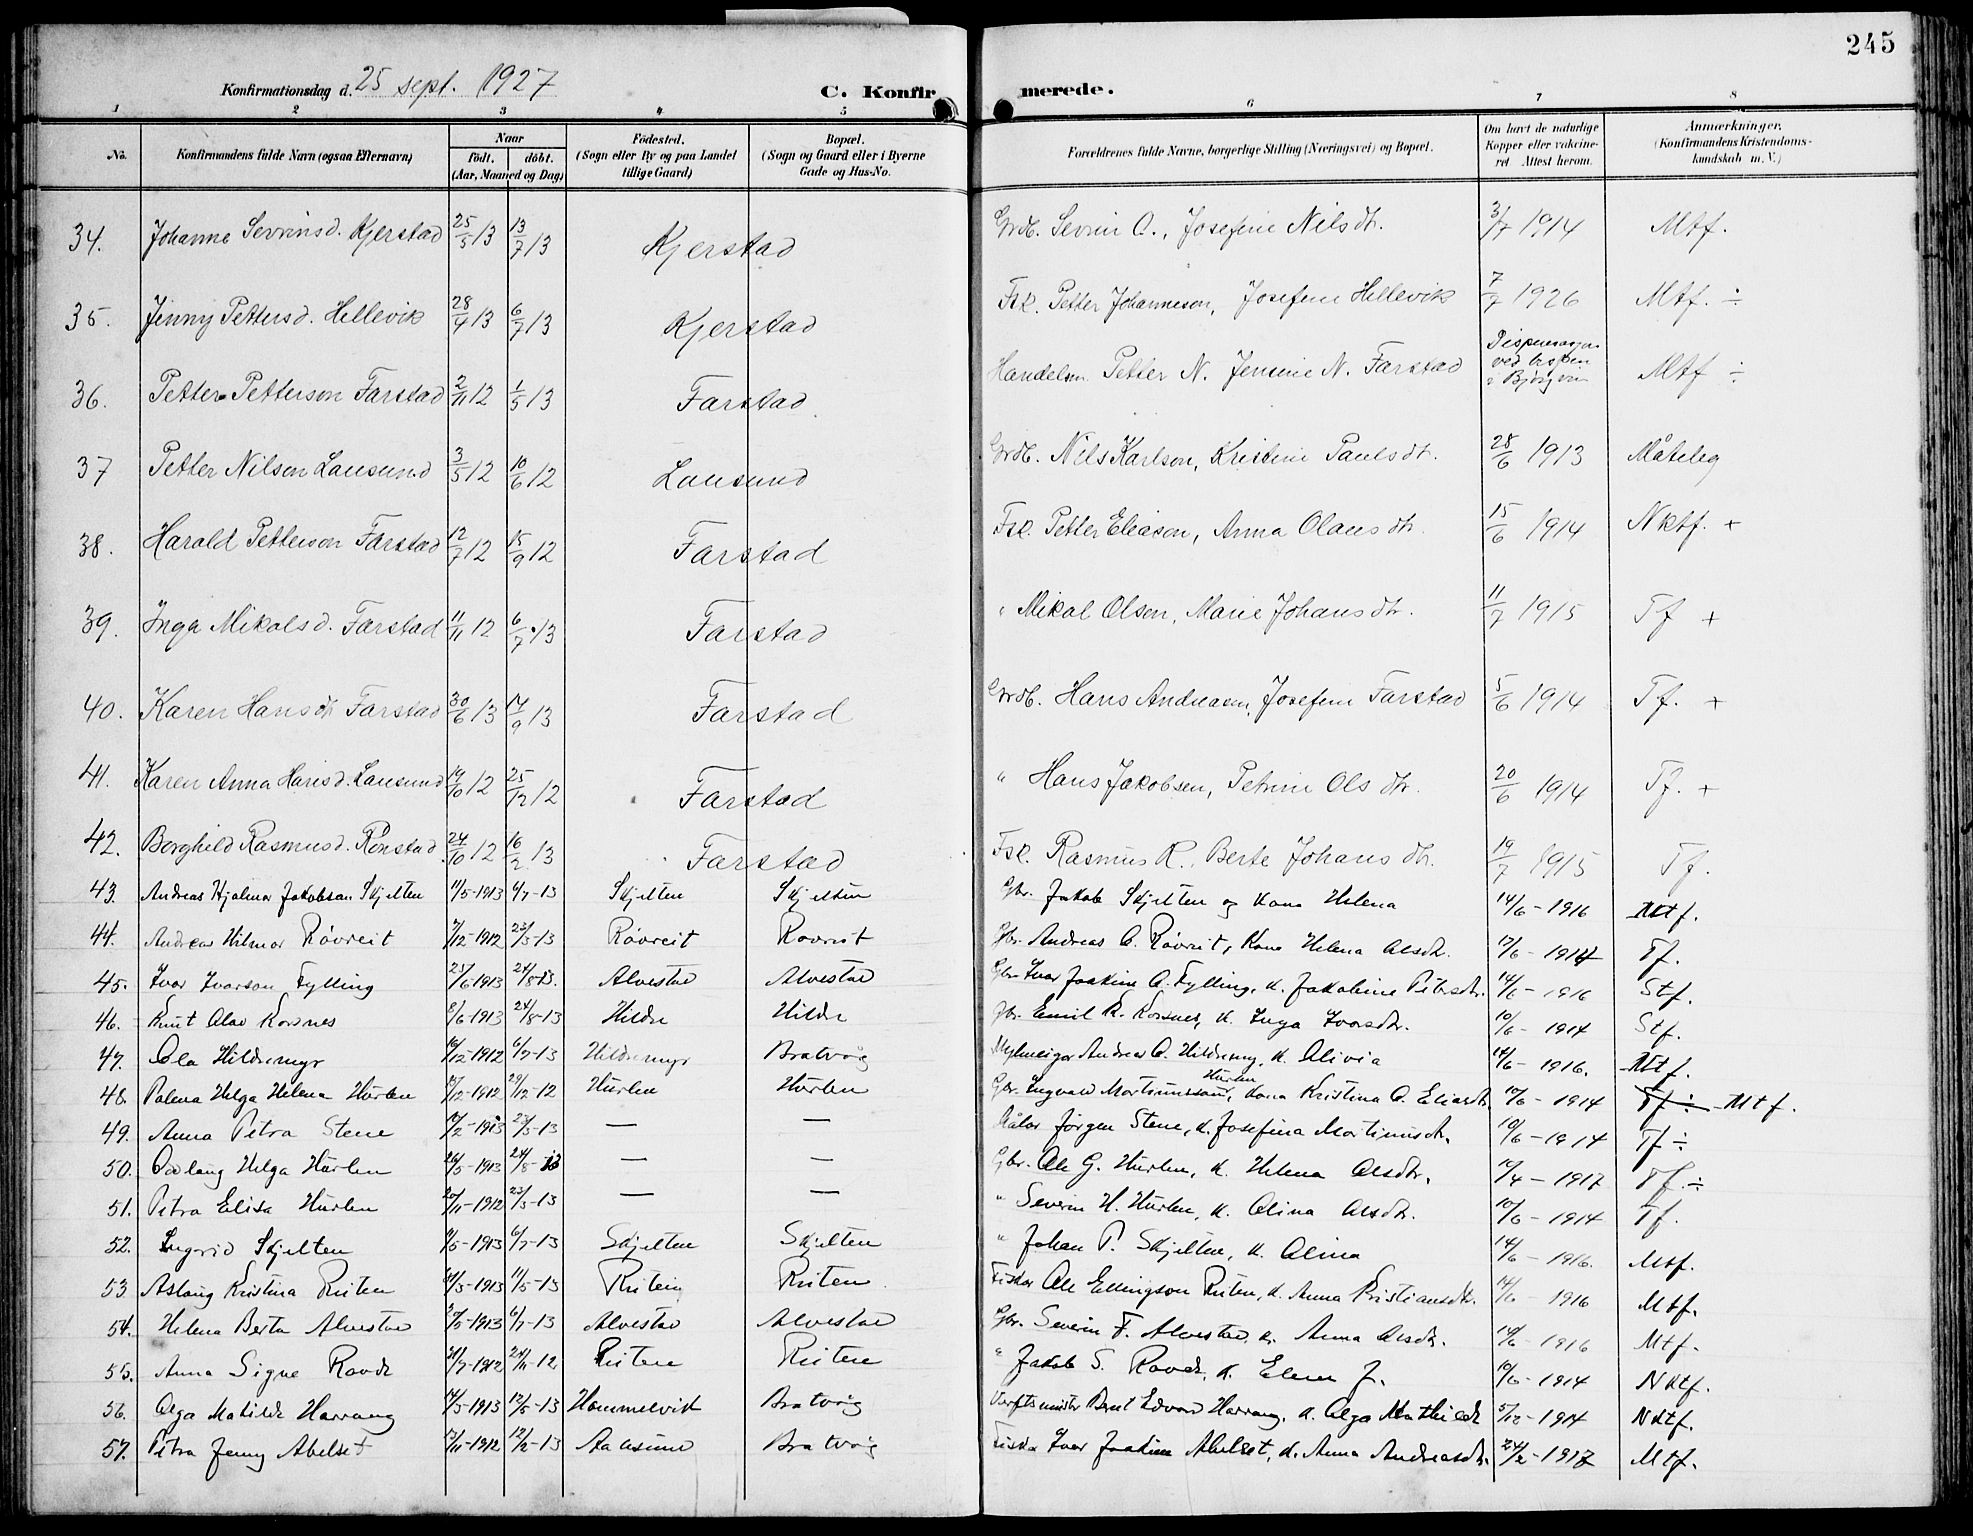 245
Konfirmationsdag d. 25 sept. 1927 C. Konfirmerede.
1 2 3 4 5 6 7 8
No. Konfirmandens fulde Navn (ogsaa Efternavn) Naar födt. döbt. (Aar, Maaned og Dag) Födested. (Sogn eller By og paa Landet tillige Gaard) Bopæl. (Sogn og Gaard eller i Byerne Gade og Hus-No. Forældrenes fulde Navne, borgerlige Stilling (Næringsvei) og Bopæl. Om havt de naturlige Kopper eller vaccineret Attest herom. Anmærkninger. (Konfirmandens Kristendomskundskab m. V.)
34. Johanne Sevrinsd. Kjerstad 25/5 13 13/7 13 Kjerstad Grdb. Sevrin O., Josefine Nilsdtr. 3/7 1914 Mtf.
35. Jenny Pettersd. Hellevik 28/4 13 6/7 13 Kjerstad Fsk. Petter Johanneson, Josefine Hellevik 7/7 1926 Mtf. ÷
36. Petter Petterson Farstad 2/11 12 1/5 13 Farstad Handelsm. Petter N. Jensine N. Farstad Dispensasjon ved bispen i Bjørgvin Mtf ÷
37 Petter Nilson Lausund 3/5 12 10/6 12 Lausund Grdb. Nils Karlson, Kristine Paulsdtr. 28/6 1913 Måteleg
38. Harald Petterson Farstad 12/7 12 15/9 12 Farstad Fsk. Petter Eliason, Anna Olausdtr. 15/6 1914 Nktf. +
39. Inga Mikalsd. Farstad 11/11 12 6/7 13 Farstad " Mikal Olsen, Marie Johansdtr. 11/7 1915 Tf +
40. Karen Hansdtr Farstad 30/6 13 14/9 13 Farstad Grdb. Hans Andreasen, Josefine Farstad 5/6 1914 Tf. +
41. Karen Anna Hansd. Lausund 19/10 12 25/12 12 Farstad " Hans Jakobsen, Petrine Olsdtr. 20/6 1914 Tf. +
42. Borghild Rasmusd. Rönstad 24/10 12 16/2 13 Farstad Fsk. Rasmus K., Berte Johansdtr. 19/7 1915 Tf.
43. Andreas Hjalmar Jakobsen Skjelten 11/5-1913 6/7-13 Skjelten Skjelten Gbr. Jakob Skjelten og kona Helena 14/6-1916 Mtf.
44. Andreas Hilmar Rövreit 7/12-1912 23/3-13 Rövreit Rovreit Gbr. Andreas O. Rövreit, kona Helena Olsdtr. 17/6-1914 Tf.
45. Ivar Ivarson Fylling 23/6-1913 24/8-13. Alvestad Alvestad Gbr. Ivar Joakim O. Fylling, k. Jakobine Petersdtr. 14/6-1916 Stf.
46. Knut Olav Korsnes 8/6-1913 24/8-13 Hildre Hildre Gbr. Emil K. Korsnes, k. Inga Ivarsdtr. 10/6-1914 Stf.
47. Ola Hildremyr 16/12-1912 6/7-13 Hildremyr Bratvåg Mylneeigar Andreas O. Hildremyr, k. Olivia 14/6-1916. Mtf.
48. Palma Helga Helena Hurlen /12-1912 29/12-12 Hurlen Hurlen Gbr. Ingvald Martinussen Hurlen, kona Kristina O. Eliasdtr. 10/6-1914 Tf ÷ - Mtf.
49. Anna Petra Stene 17/2-1913 23/3-13 — — Målar Jørgen Stene, k. Josefina Martinusdtr. 10/6-1914 Tf ÷
50. Oddlaug Helga Hurlen 26/5-1913 24/8-13 — — Gbr. Ole G. Hurlen, k. Helena Olsdtr. /4-1917 Tf. ÷
51. Petra Elisa Hurlen 20/11-1912 23/3-13 — — " Severin H. Hurlen, k. Olina Olsdtr. 10/6-1914 Tf.
52. Ingrid Skjelten 9/5-1913 6/7-13 Skjelten Skjelten " Johan P. Skjelten, k. Olina 14/6-1916. Mtf.
53. Aslaug Kristina Riiten /3-1913 11/5-13 Riiten Riiten Fisker Ole Ellingson Riiten, k. Anna Kristiansdtr. 14/6-1916 Mtf.
54. Helena Berta Alvestad 20/5-1913 6/7-13 Alvestad Alvestad Gbr. Severin F. Alvestad k. Anna Olsdtr. 14/6-1916 Mtf.
55. Anna Signe Ravdr 31/7-1912 24/11-12. Riiten Riiten " Jakob S. Ravdr, k. Elena J. 10/6-1914 Nktf.
56. Olga Matilde Harrang 14/3-1913 12/5-13 Hammelvik Bratvåg Verftsmister Bernt Edvard Harrang, k. Olga Mathilde 5/12-1914 Nktf.
57. Petra Jenny Abelset 17/11-1912 12/2-13 Aalesund Bratvåg Fisker Ivar Joakim Abelset, k. Anna Andreasdtr. 24/2-1917 Mtf.